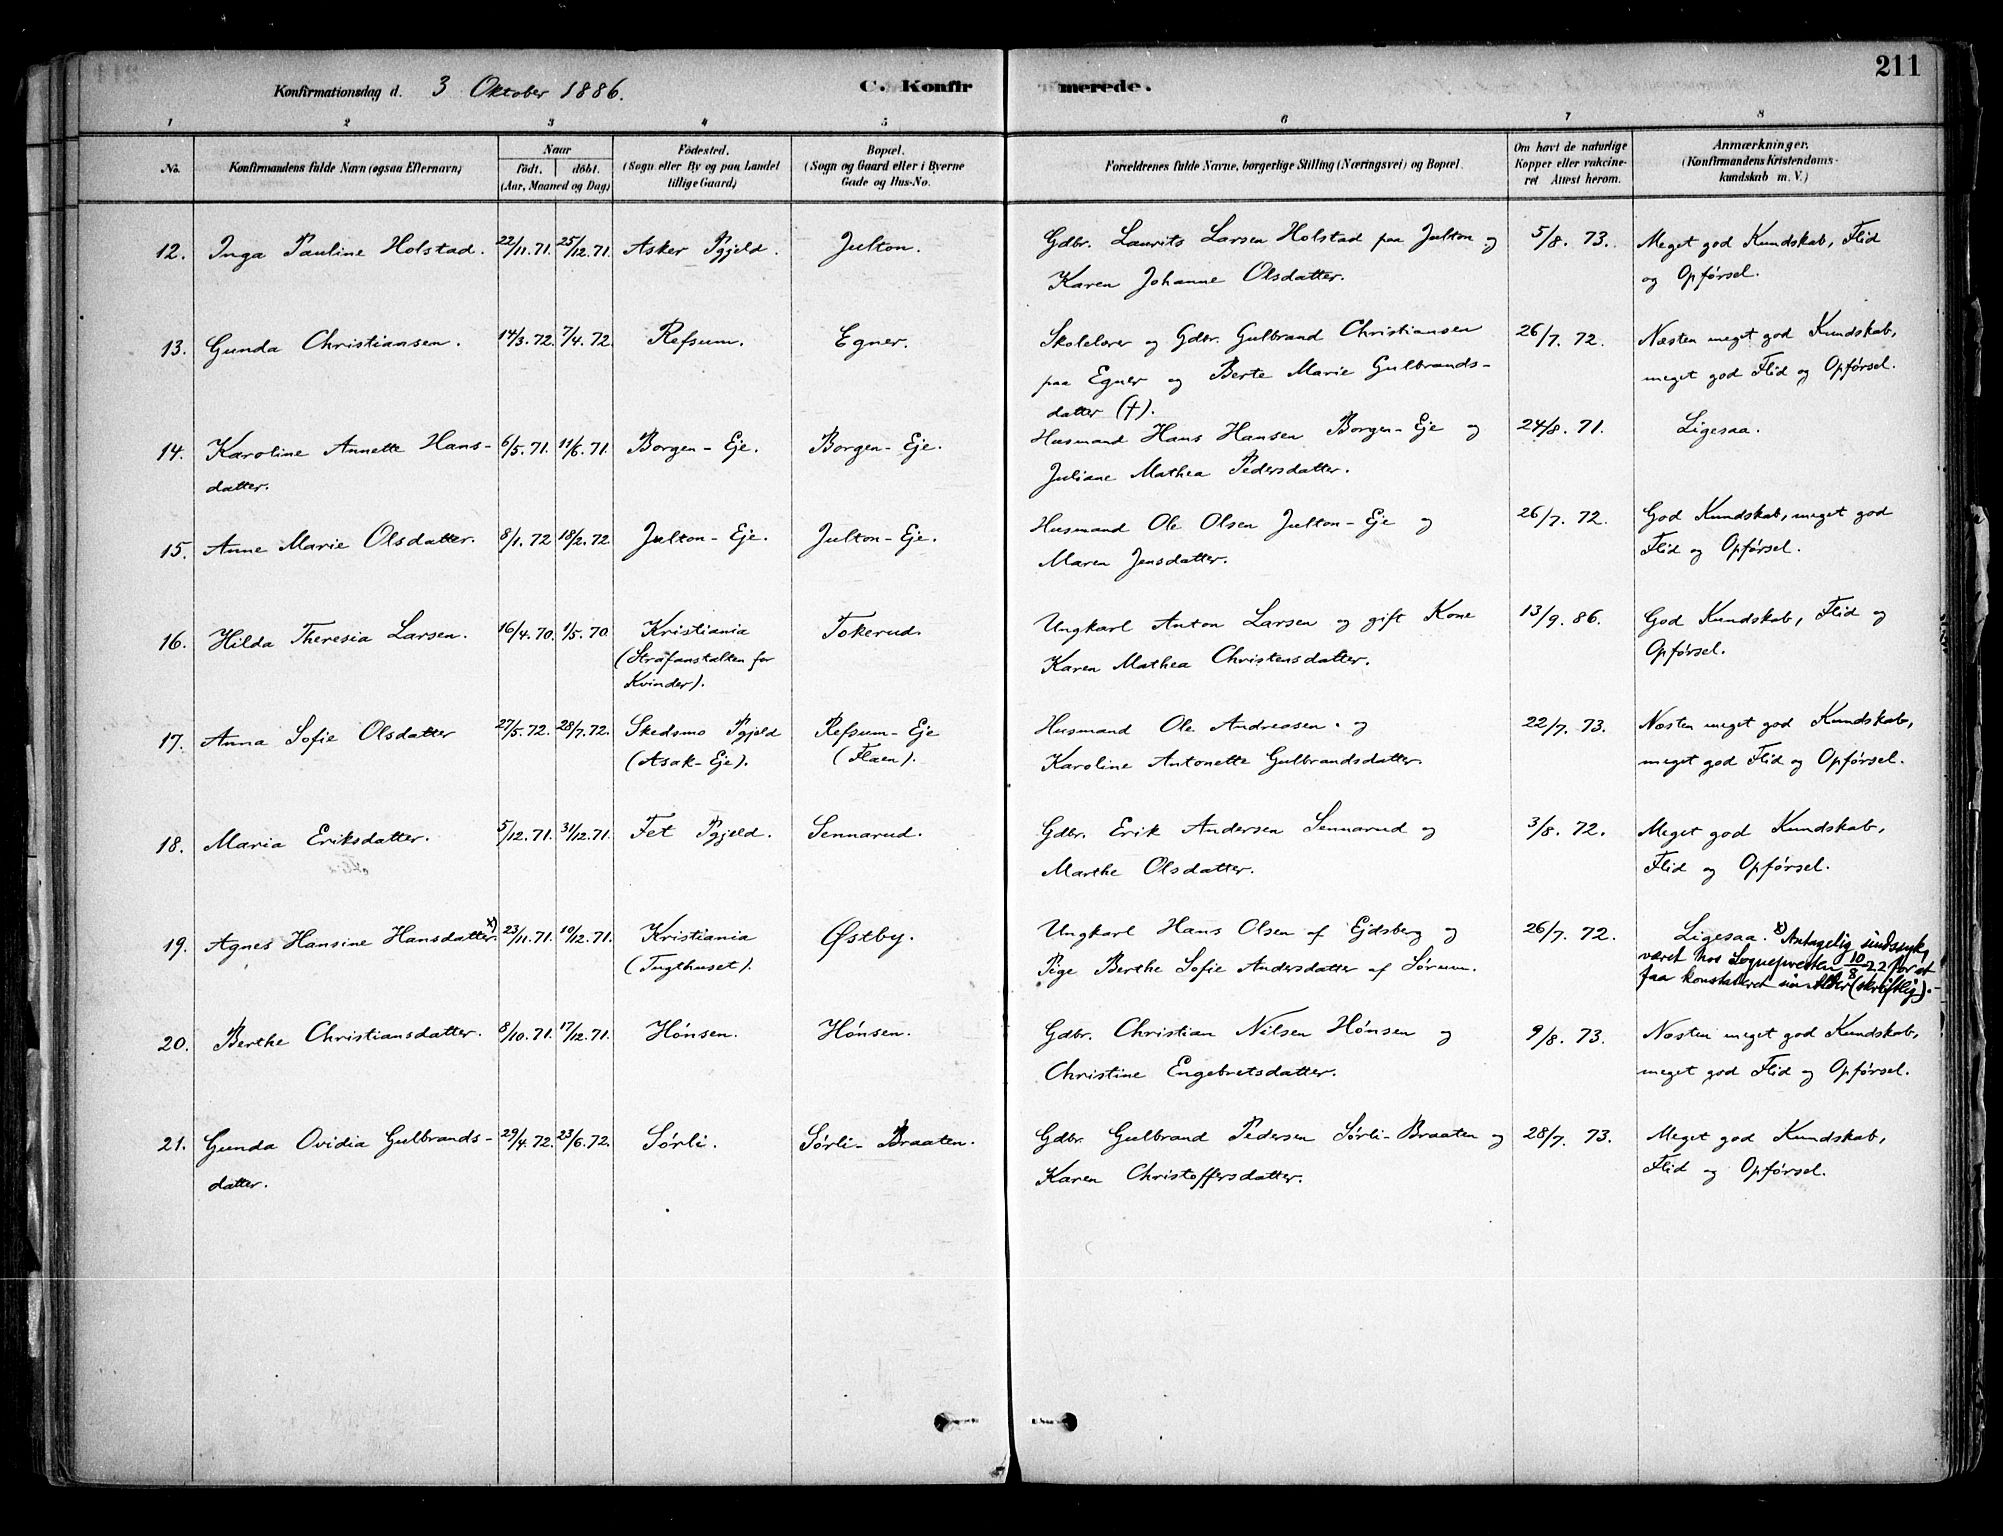 211
Konfirmationsdag d. 3 Oktober 1886. C. Konfirmerede.
1 2 3 4 5 6 7 8
No. Konfirmandens fulde Navn (ogsaa Efternavn) Naar født. døbt. (Aar, Maaned og Dag) Fødested. (Sogn eller By og paa Landet tillige Gaard) Bopæl. (Sogn og Gaard eller i Byerne Gade og Hus-No. Forældrenes fulde Navne, borgerlige Stilling (Næringsvei) og Bopæl. Om havt de naturlige Kopper eller vakcineret Attest herom. Anmærkninger. (Konfirmandens Kristendomskundskab m. V.)
12. Inga Pauline Holstad. 22/11.71. 25/12.71. Asker Pgjeld. Julton. Gdbr. Laurits Larsen Holstad paa Julton og 5/8. 73. Meget god Kundskab, Flid
Karen Johanne Olsdatter. og Opførsel.
13. Gunda Christiansen. 14/3.72. 7/4.72. Refsum. Egner. Skolelærer og Gdbr. Gulbrand Christiansen 26/7. 72. Næsten meget god Kundskab,
paa Egner og Berte Marie Gulbrands- meget god Flid og Opførsel.
datter (†).
14. Karoline Annette Hans- 6/5.71. 11/6.71. Borgen-Eje. Borgen-Eje. Husmand Hans Hansen Borgen-Eje og 24/8. 71. Ligesaa.
datter. Juliane Mathea Pedersdatter.
15. Anne Marie Olsdatter. 8/1.72 18/2.72. Julton-Eje. Julton-Eje. Husmand Ole Olsen Julton-Eje og 26/7. 72. God Kundskab, meget god
Maren Jensdatter. Flid og Opførsel.
16. Hilda Theresia Larsen. 16/4.70. 1/5.70. Kristiania Tokerud. Ungkarl Anton Larsen og gift Kone 13/9. 86. God Kundskab, Flid og
(Strafanstalten for Karen Mathea Christensdatter. Opførsel.
Kvinder).
17. Anna Sofie Olsdatter 27/5.72. 28/7.72. Skedsmo Pgjeld Refsum-Eje Husmand Ole Andreasen. og 22/7. 73. Næsten meget god Kundskab,
(Asak-Eje). (Flaen). Karoline Antonette Gulbrandsdatter. meget god Flid og Opførsel.
18. Maria Eriksdatter. 5/12.71. 31/12.71. Fet Pgjeld. Sennerud. Gdbr. Erik Andersen Sennerud og 3/8. 72. Meget god Kundskab,
Marthe Olsdatter. Flid og Opførsel.
19. Agnes Hansine Hansdatter. x) 23/11.71. 10/12.71. Kristiania Østby. Ungkarl Hans Olsen af Ejdsberg og 26/7. 72. Ligesaa. x) Antagelig sindssyk,
(Tugthuset). Pige Berthe Sofie Andersdatter af Sørum. været hos Sognepresten 10/8 22 for at
faa konstateret sin Alder (skriftlig).
20. Berthe Christiansdatter. 8/10.71. 17/12.71. Hønsen. Hønsen. Gdbr. Christian Nilsen Hønsen og 9/8. 73. Næsten meget god Kundskab,
Christine Engebretsdatter. meget god Flid og Opførsel.
21. Gunda Ovidia Gulbrands- 29/4.72. 23/6.72. Sørli. Sørli-Braaten. Gdbr. Gulbrand Pedersen Sørli-Braaten og 28/7. 73. Meget god Kundskab,
datter. Karen Christoffersdatter. Flid og Opførsel.